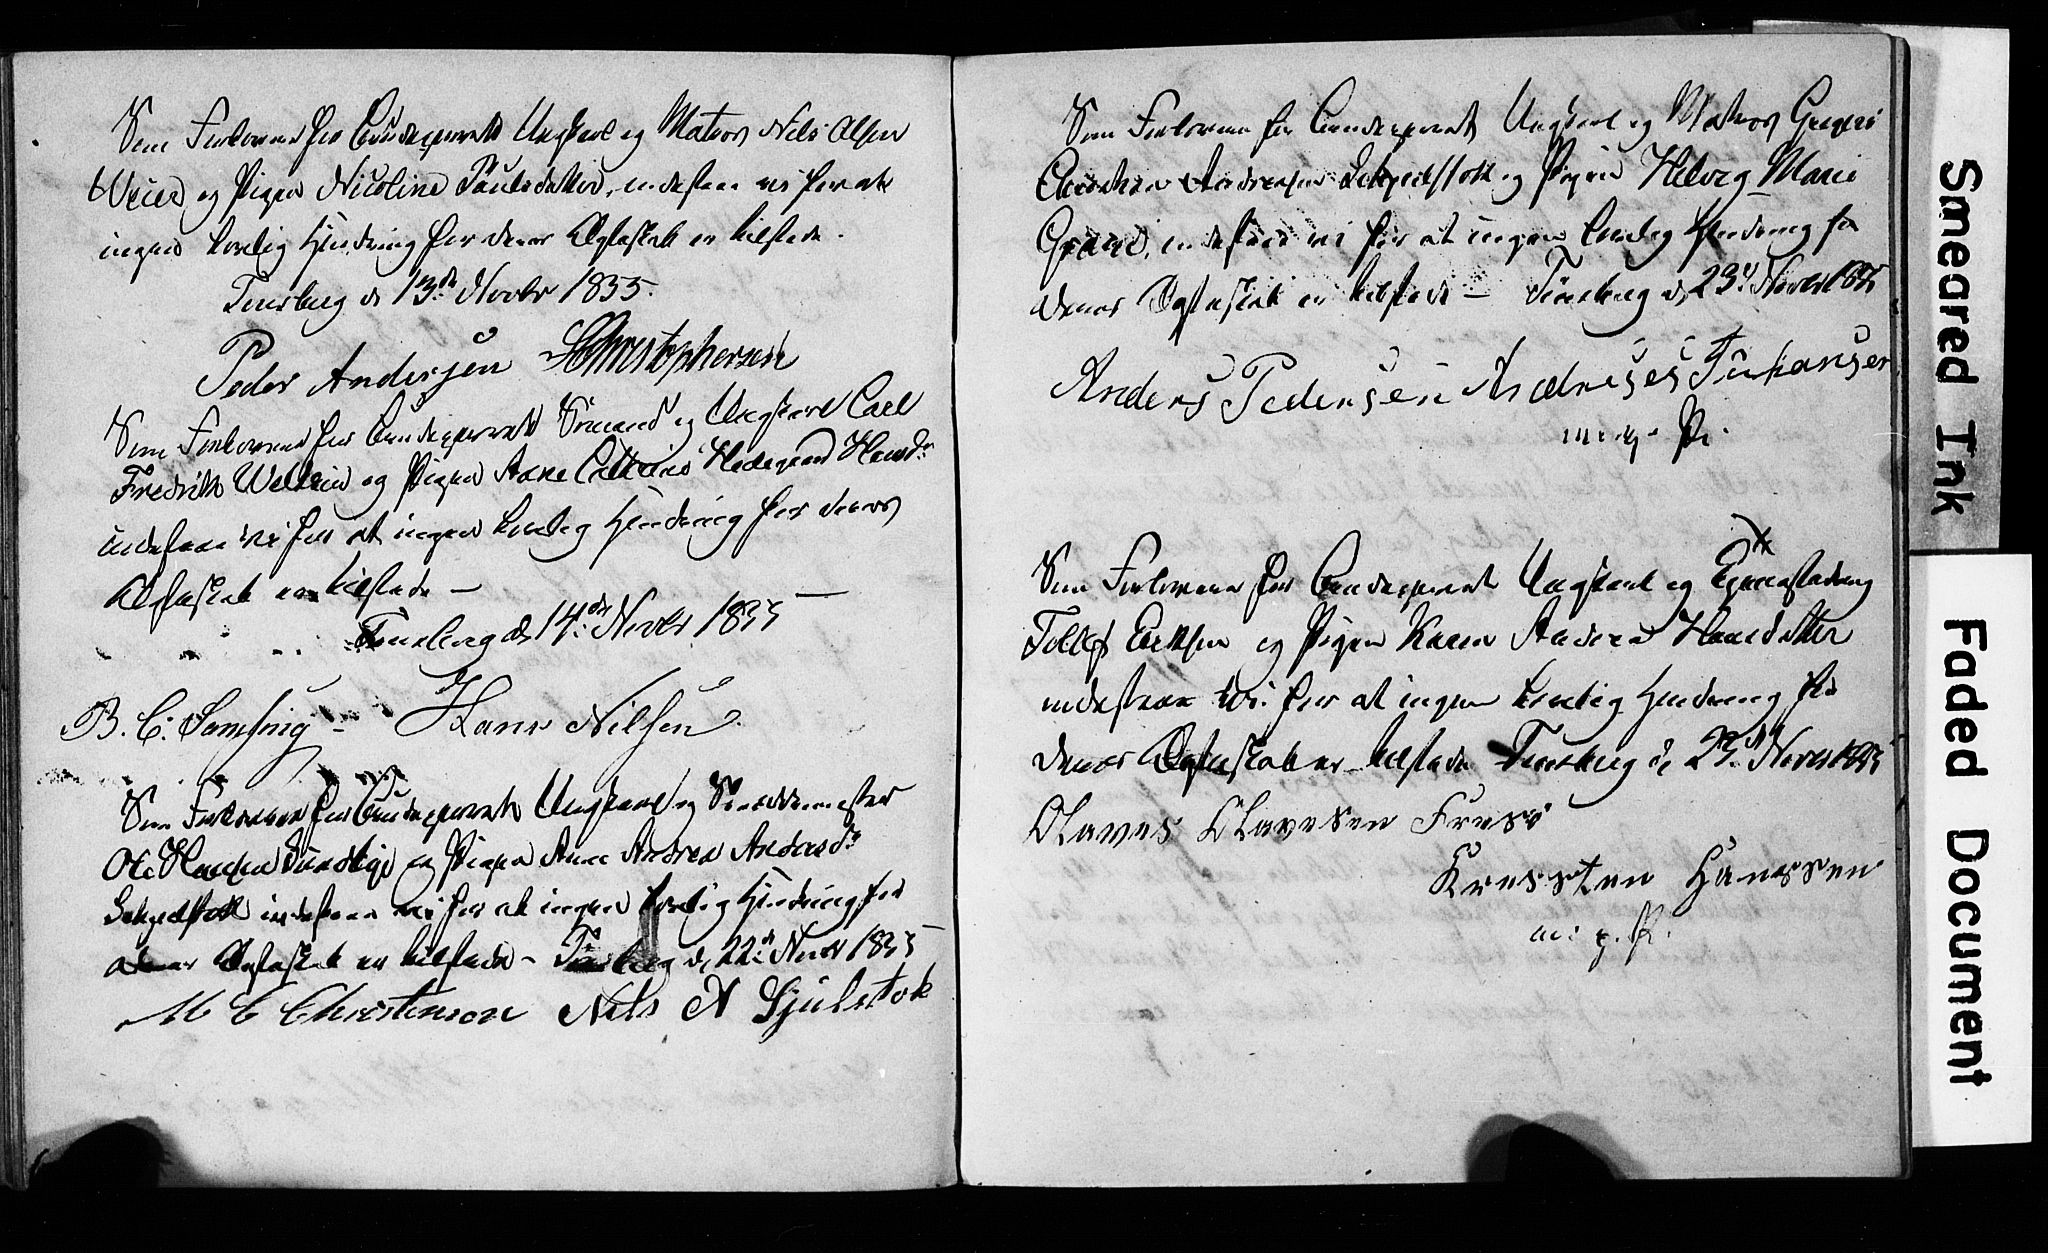 Som Forlovere for Brudeparret Ungkarl og Matros Nils Olsen
Weier og Pigen Nicoline Paulsdatter, indestaae vi for at
ingen lovlig Hindring for deres Ægteskab er tilstede.
Tønsberg d 13de Novbr 1835.
Peder Andersen Christophersen
Som Forlovere for Brudeparret Sömand og Ungkarl Carl
Fredrik og Pigen Anne Cathrine Hansdr
indestaae vi for at ingen lovlig Hindring for deres
Ægteskab er tilstede —
Tönsberg d 14de Novbr 1835
B. C. Samsing - Hans Nilsen
Som Forlovere for Brudeparret Ungkarl og
Ole Hansen og Pigen Anne Andrea Andersdr
indestaae vi for at ingen lovlig Hindring for
deres Ægteskab er tilstede - Tönsberg d, 22de Novbr 1835
M C Christenson Nils A Sjulstok
Som Forlovere for Brudeparret Ungkarl og Matros
Andersen og Pigen Helvig Marie
indestaae vi for at ingen lovlig Hindring for
deres Ægteskab er tilstede — Tönsberg d, 23d Novbr 1835
Anders Pedersen Andreses
m. p. P.
Som Forlovere for Brudeparret Ungkarl og
Eriksen og Pigen Karen Andrea Hansdatter
indestaae wi for at ingen lovlig Hindring for
deres Ægteskab er tilstede Tönsberg d, Novbr 1835
Olaves Olavesen Fresö
Kressten Hanssen
m. p. P.
Smeared Ink
Faded Document